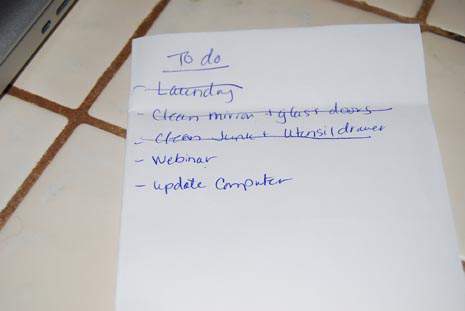 To do
- Laundry
- Clean mirror + glass doors
- Clean Junk + Utensil drawer
- Webinar
- update Computer